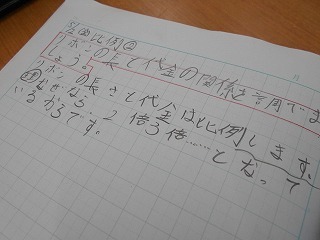 5/2 図 比例②
リボンの長さと代金の関係を調べま
しょう。
リボンの長さと代金は比例します。
なぜなら…2倍3倍……となって
いるからです。